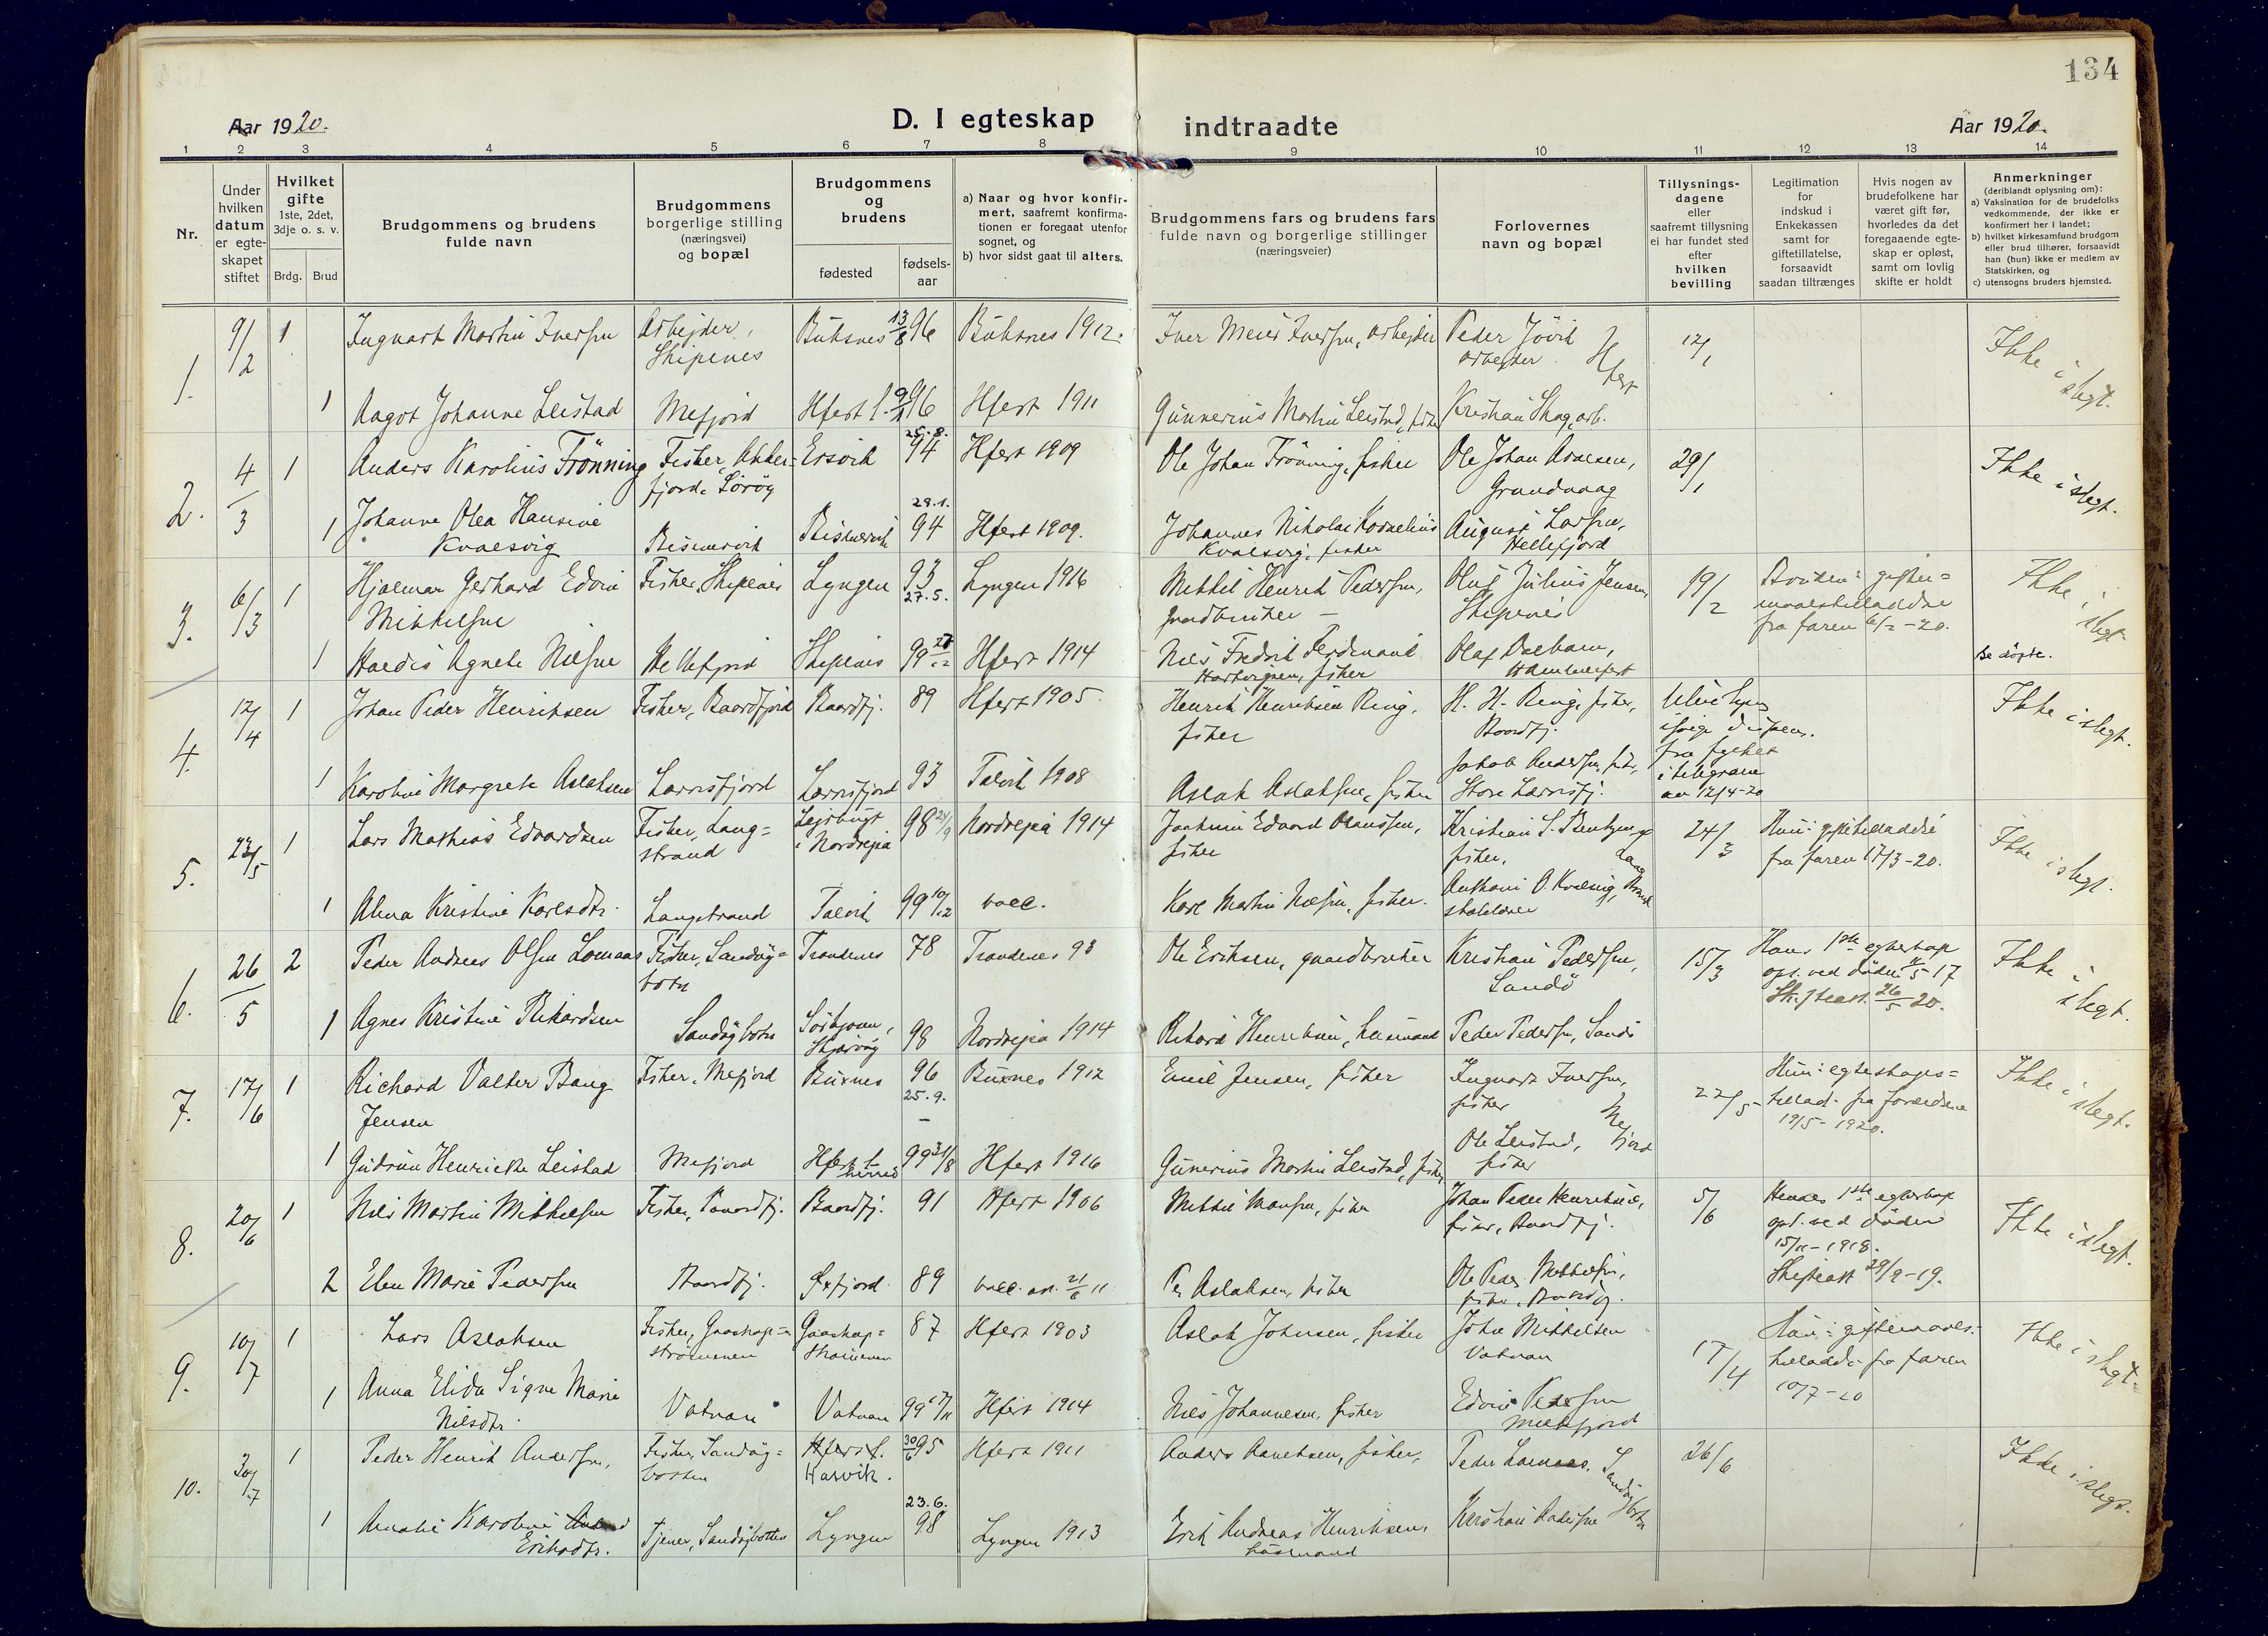 134
Aar 1920.
D. I egteskap
indtraadte
Aar 1920.
1 2 3 4 5 6 7 8 9 10 11 12 13 14
Nr.
Under
hvilken
datum
er egte-
skapet
stiftet
Hvilket
gifte
1ste, 2det,
3dje o. s. v.
Brdg. Brud
Brudgommens og brudens
fulde navn
Brudgommens
borgerlige stilling
(næringsvei)
og bopæl
Brudgommens
og
brudens
fødested
fødsels-
aar
a) Naar og hvor konfir-
mert, saafremt konfirma-
tionen er foregaat utenfor
sognet, og
b) hvor sidst gaat til alters.
Brudgommens fars og brudens fars
fulde navn og borgerlige stillinger
(næringsveier)
Forlovernes
navn og bopæl
Tillysnings-
dagene
eller
saafremt tillysning
ei har fundet sted
efter
hvilken
bevilling
Legitimation
for
indskud i
Enkekassen
samt for
giftetillatelse,
forsaavidt
saadan tiltrænges
Hvis nogen av
brudefolkene har
været gift før,
hvorledes da det
foregaaende egte-
skap er opløst,
samt om lovlig
skifte er holdt
Anmerkninger
(deriblandt oplysning om):
a) Vaksination for de brudefolks
vedkommende, der ikke er
konfirmert her i landet;
b) hvilket kirkesamfund brudgom
eller brud tilhører, forsaavidt
han (hun) ikke er medlem av
Statskirken, og
c) utensogns bruders hjemsted.
1. 9/2 1 Ingvart Martin Iversen Arbeider, Skipenes Buksnes 13/8 96 Buksnes 1912. Iver Meier Iversen, arbeider Peder Jövik arbeider Hfest 12/1 Ikke i slegt.
1 Aagot Johanne Leistad Mefjord Hfest l. 96 Hfest 1911 Gunnerius Martin Leistad, fisker Kristian Skog, arb.
2. 4/3 1 Anders Karolius Trönning Fisker, Akker=
fjord. Söröy Ersvik 94 Hfest 1909 Ole Johan Trönning, fisker Ole Johan
Grundvaag 29/1 Ikke i slegt.
1 Johanne Olea Hansine
Kvalsvig Bismervik Bismervik 29.1. 94 Hfest 1909. Johannes Nikolai Kornelius
Kvalsvig, fisker August Larsen,
Hellefjord
3. 6/3 1 Hjalmar Gerhard Edvin
Mikkelsen Fisker, Skipenes Lyngen 93
27.5. Lyngen 1916 Mikkel Henrik Pedersen,
gaardbruker Oluf Julius Jensen,
Skipenes 19/2 Bruden: gifter=
maalstilladelse
fra faren 6/2-20. Ikke i slegt
1 Hardis Agnete Nilsen Hellefjord Skipenes 99 Hfest 1914 Nils Fredrik Ferdinand
Hartvigsen, fisker Olaf
Hammerfest
4. 12/4 1 Johan Peder Henriksen Fisker, Baardfjord Baardfj. 89 Hfest 1905. Henrik Henriksen Ring,
fisker H. H. Ring, fisker,
Baardfj.
fra fylket
i telegram
av 12/4-20 Ikke i slegt.
1 Karoline Margrete Aslaksen Larrisfjord Larrisfjord 93 Talvik 1908 Aslak Aslaksen, fisker Jakob Andersen, fisker,
Store Larrisfj.
5. 23/5 1 Lars Mathias Edvardsen Fisker, Lang=
strand
i Nordreisa 98 24/9 Nordreisa 1914 Joakim Edvard Olaussen,
fisker Kristian S. Bentzen,
fisker. 24/3 Hun: giftetilladelse
fra faren 17/3-20. Ikke i slegt.
1 Alma Kristine Karlsdtr. Langstrand Talvik 99 10/12 vacc. Karl Martin Nilsen, fisker. Anthoni O. Kvalsvig, Langstrand
6. 26/5 2 Peder Andreas Olsen Lomaas Fisker, Sandöy=
botn Trondenes 78 Trondenes 93 Ole Eriksen, gaardbruker Kristian Pedersen,
Sandö 15/3 Hans 1ste egteskap
opl. ved döden 11/5-17
Skifteatt. 26/5-20. Ikke i slegt.
1 Agnes Kristine Rikardsen Sandöybotn
Skjervöy 98 Nordreisa 1914 Rikard Henriksen, husmand Peder Pedersen, Sandö
7. 17/6 1 Richard Valter Bang
Jensen Fisker, Mefjord Buxnes 96
25.9. Buxnes 1912 Emil Jensen, fisker Ingvart Iversen,
fisker Mefjord 22/5 Hun: egteskaps=
tillad. fra foreldrene
19/5-1920. Ikke i slegt.
1 Gudrun Henrikke Leistad Mefjord Hfest l.
herred 99 31/8 Hfest 1916 Gunerius Martin Leistad, fisker Ole Leistad,
fisker
8. 20/6 1 Nils Martin Mikkelsen Fisker, Baardfj. Baardfj. 91 Hfest 1906 Mikkel Monsen, fisker Johan Peder Henriksen,
fisker, Baardfj. 5/6 Hendes 1ste egteskap
opl. ved döden
15/11-1918.
Skifteatt 29/9-19. Ikke i slegt.
2 Elen Marie Pedersen Baardfj. Öxfjord 89 vacc. att. 21/6 11 Per Aslaksen, fisker Ole Peder Mikkelsen,
fisker, Baardfj.
9. 10/7 1 Lars Aslaksen Fisker, Gaashop=
strömmen Gaashop=
strömmen 87 Hfest 1903 Aslak Johnsen, fisker John Mikkelsen
Vatnan 17/4 Hun: giftermaals=
tilladelse fra faren
10/7-20 Ikke i slegt
1 Anna Elida Signe Marie
Nilsdtr. Vatnan Vatnan 99 Hfest 1914 Nils Johannesen, fisker Edvin Pedersen
10. 20/7 1 Peder Henrik Andersen, Fisker, Sandöy=
botten Hfest l.
Harvik. 30/6 95 Hfest 1911 Anders fisker, Peder Lomaas. Sandöybotn 26/6 Ikke i slegt.
1 Amalie Karoline
Eriksdtr. Tjener, Sandöybotten Lyngen 23.6.
98 Lyngen 1913 Erik Andreas Henriksen,
husmand Kristian Pedersen